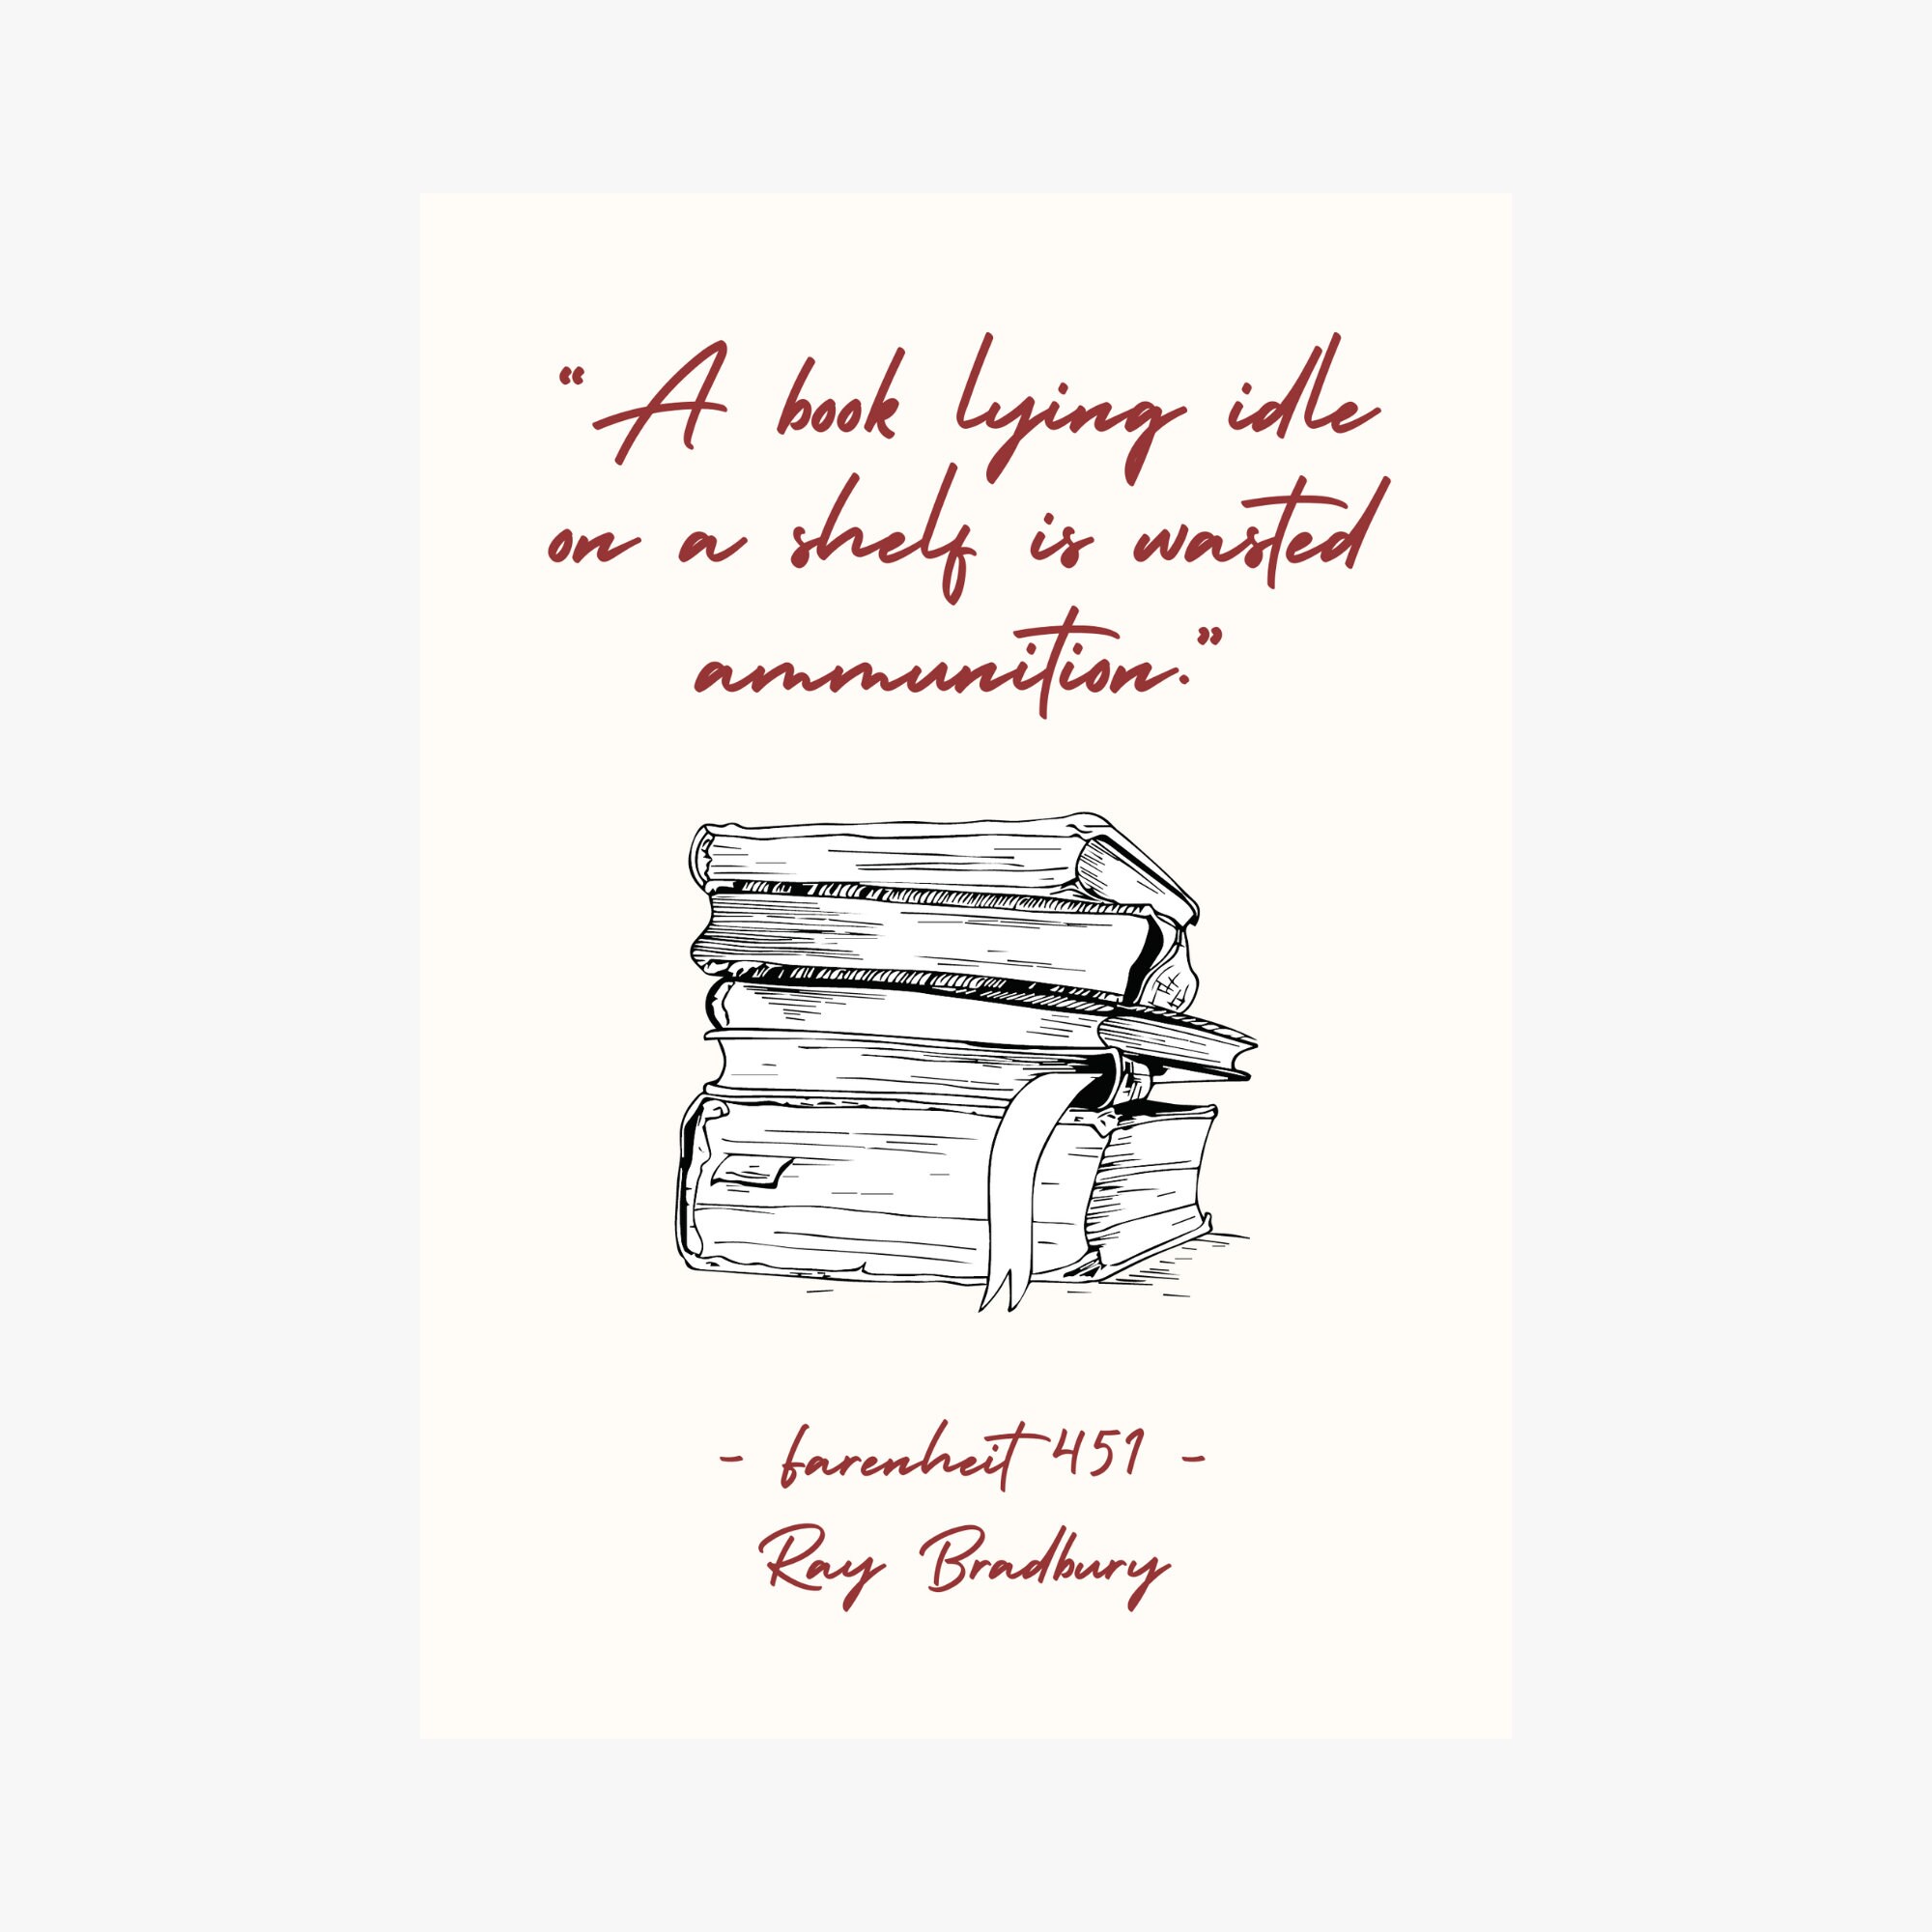 “A book lying idle
on a shelf is wasted
ammunition.”
- farenheit 451 -
Ray Bradbury